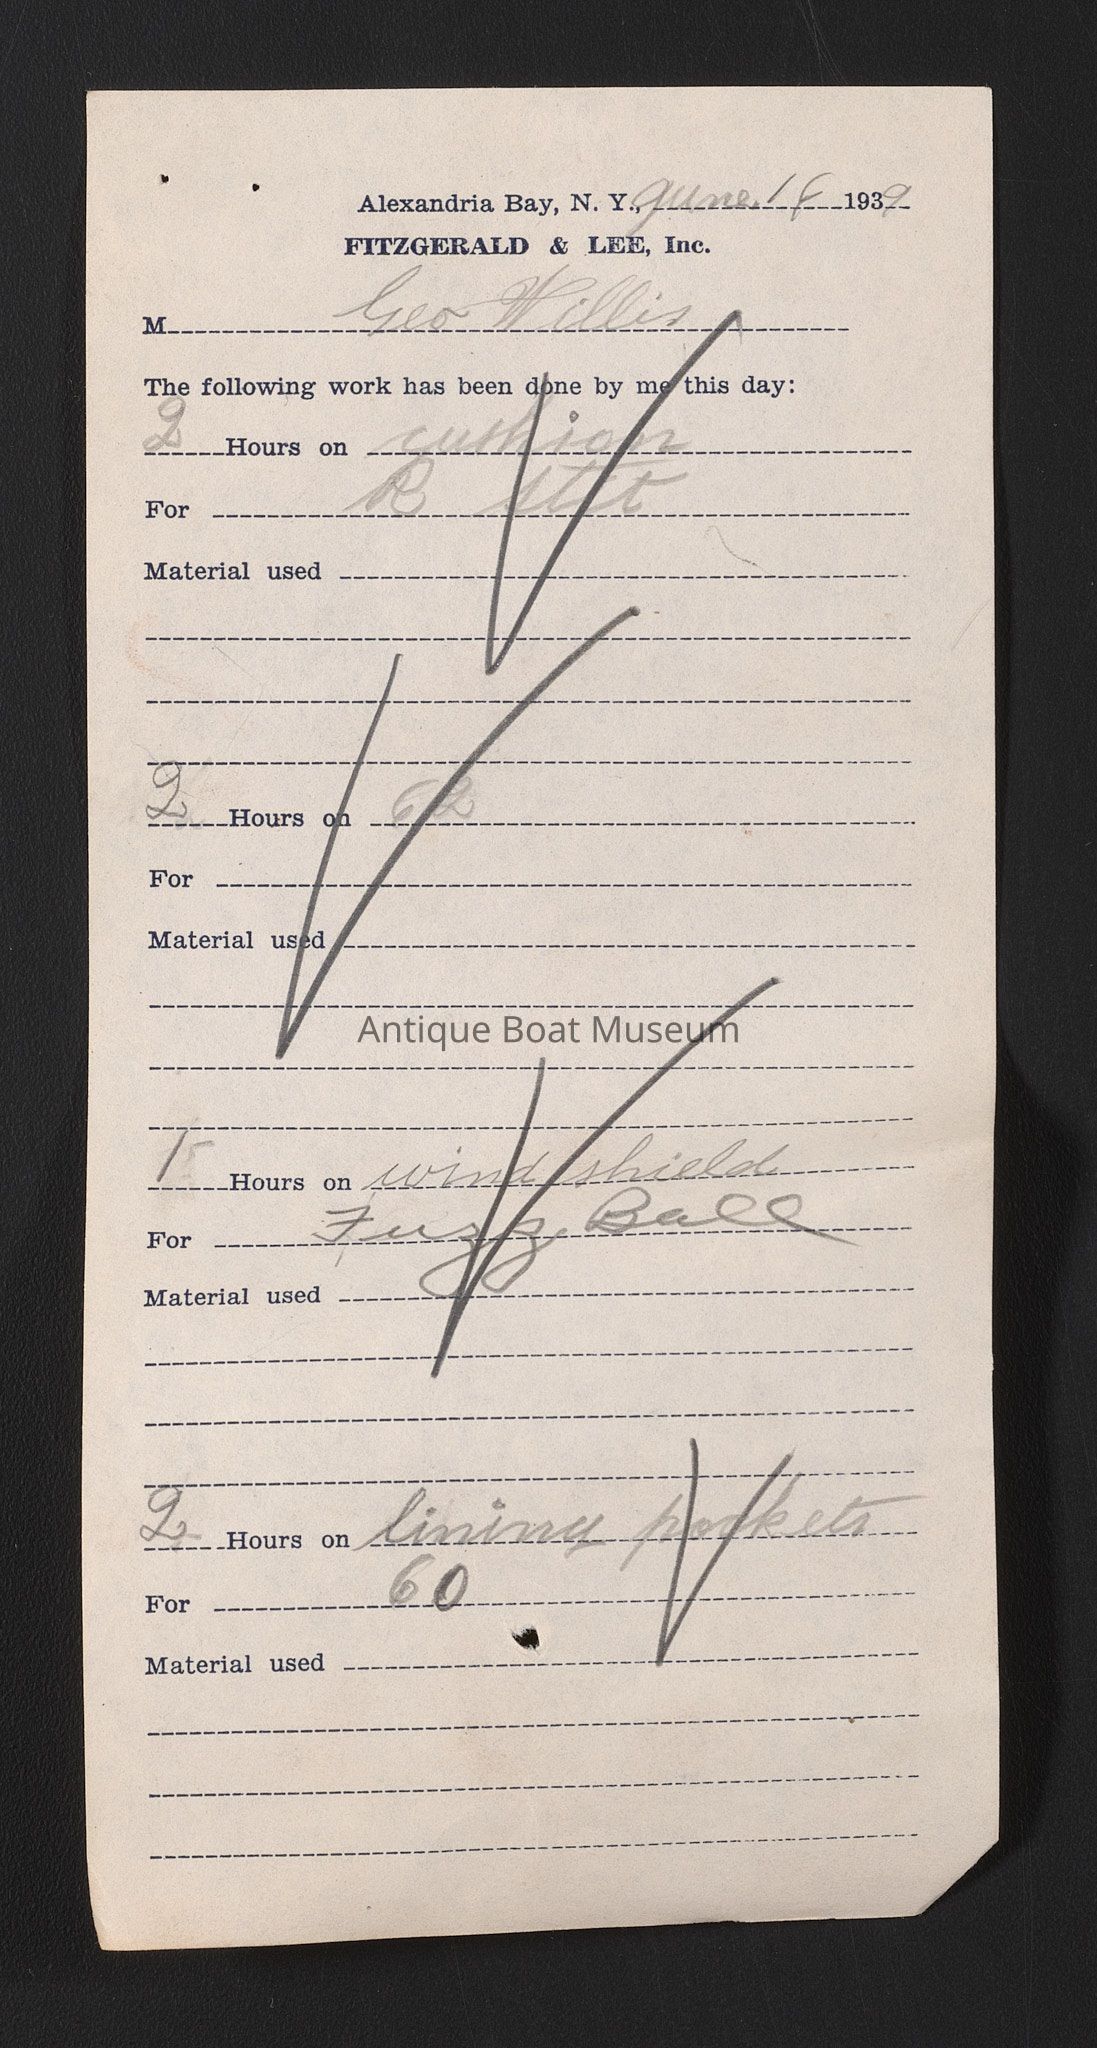 Alexandria Bay, N. Y., June 1939
FITZGERALD & LEE, Inc.
M Geo Willis
The following work has been done by me this day:
2 Hours on cushion
For R
Material used
2 Hours on 62
For
Material used
Antique Boat Museum
1 Hours on wind shield
For Fuzz Ball
Material used
2 Hours on lining pockets
For 60
Material used